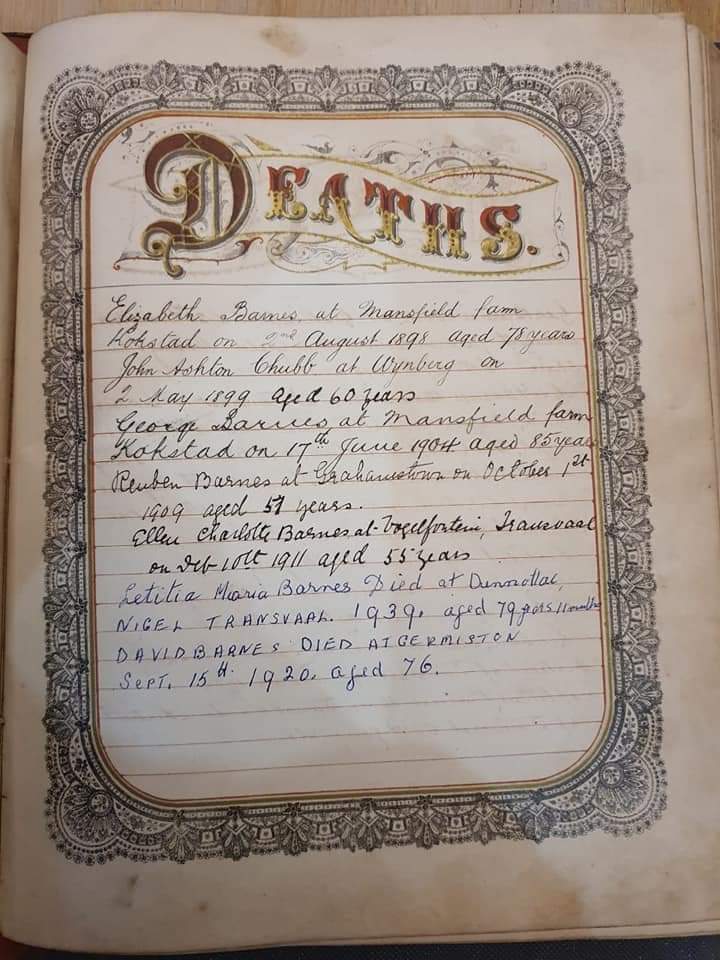 DEATHS.
Elizabeth Barnes at Mansfield farm
Kokstad on 2nd August 1898 aged 78 years
John Ashton Chubb at Wynberg on
2 May 1899 aged 60 years
George Barnes at Mansfield farm
Kokstad on 17th June 1904 aged 85 years
Reuben Barnes at Grahamstown on October 1st
1909 aged 57 years.
Ellen Charlotte Barnes at Vogelfontein, Transvaal
on Feb 10th 1911 aged 55 years
Letitia Maria Barnes Died at Dunnottar,
NIGEL TRANSVAAL. 1939. aged 79 years 11 months
DAVID BARNES DIED AT GERMISTON
SEPT. 15th 1920. aged 76.